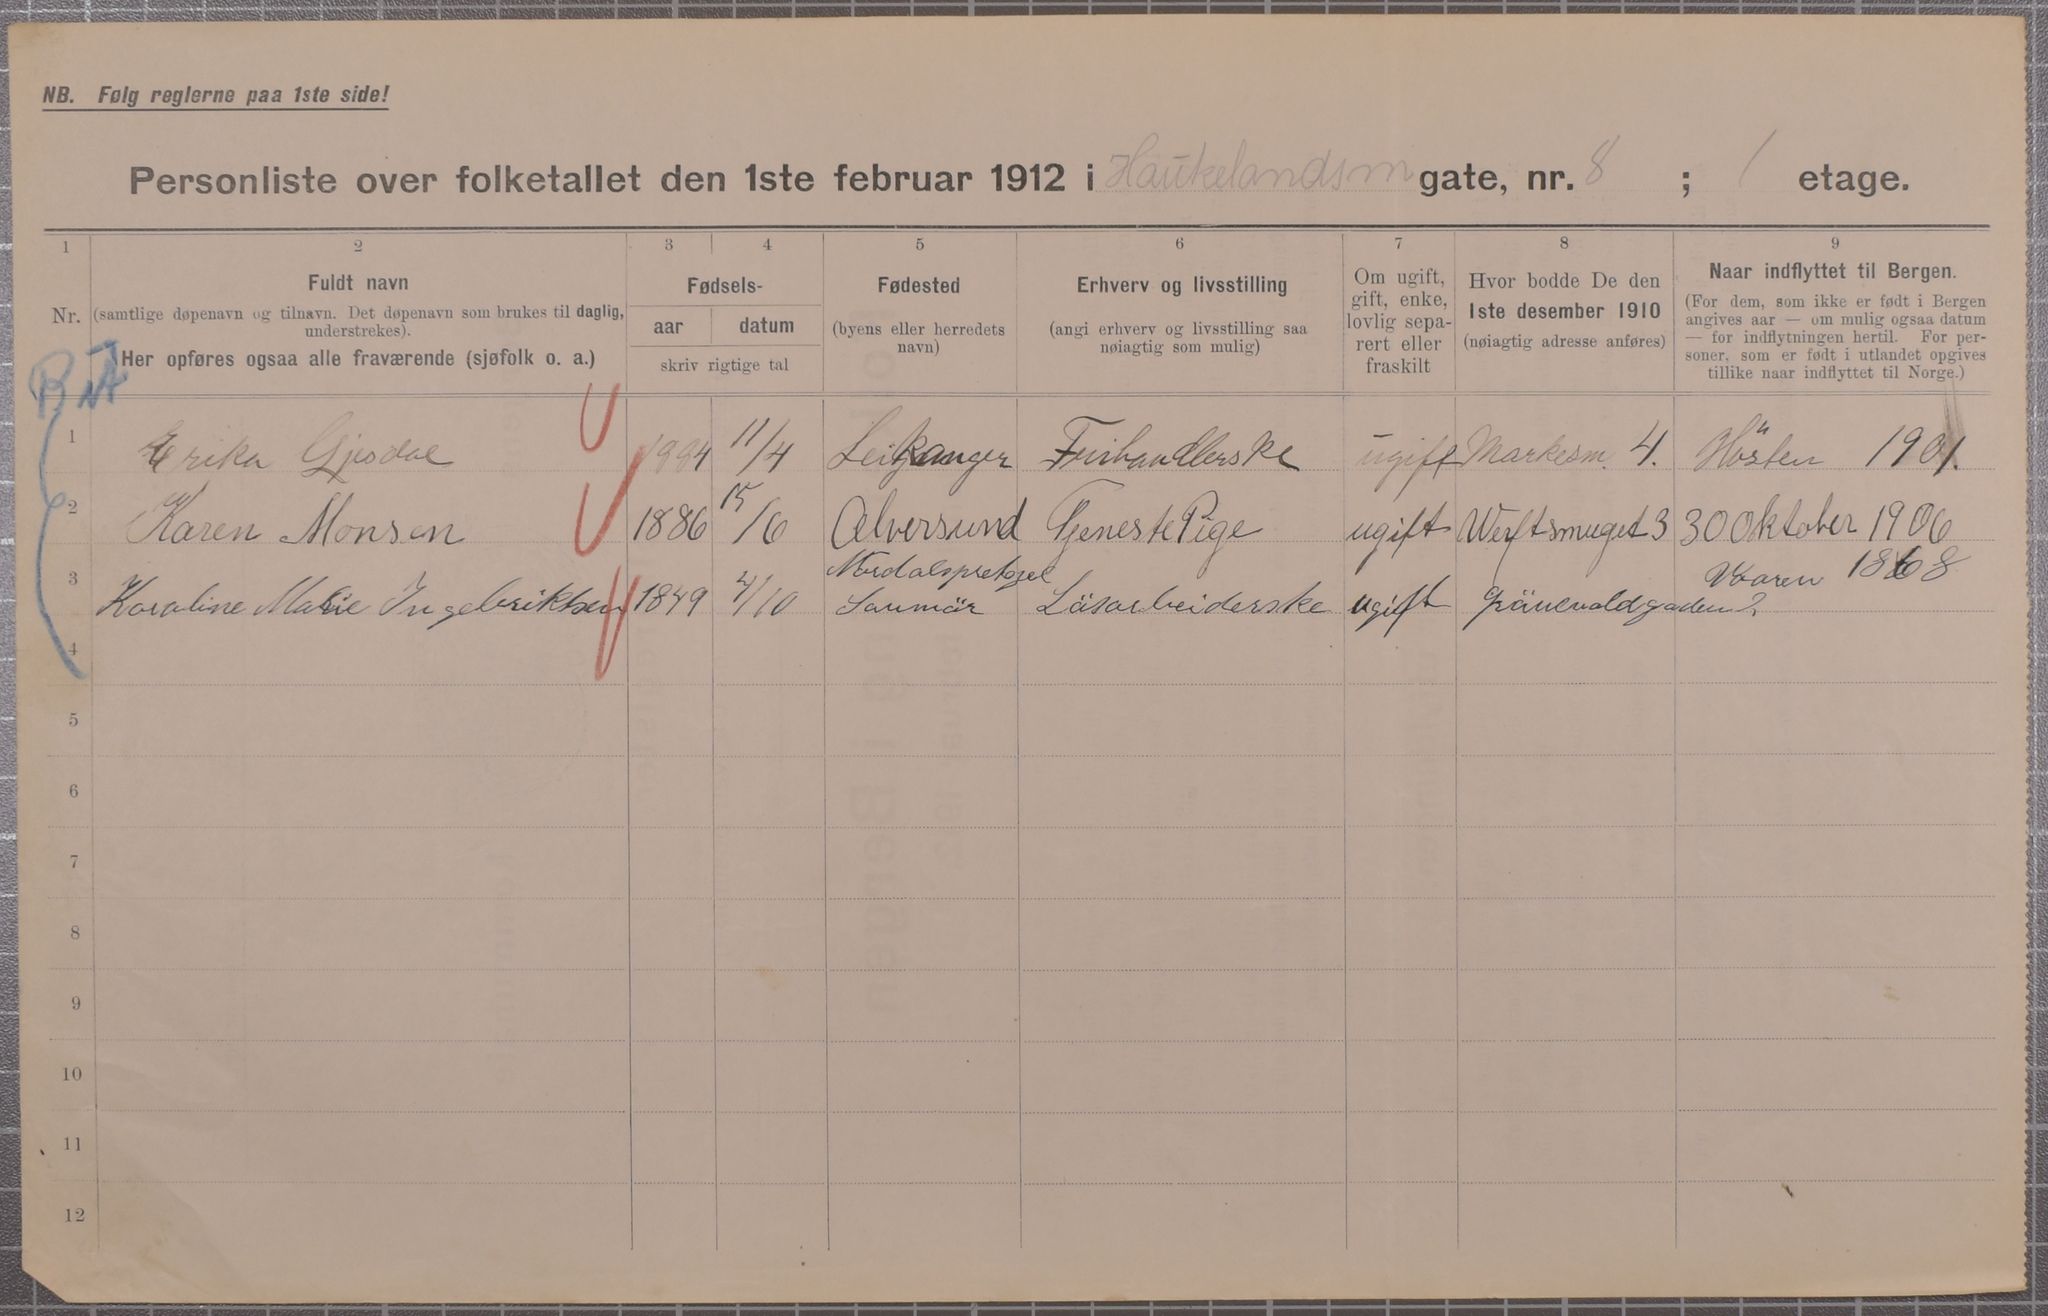 NB. Følg reglerne paa 1ste side!
Personliste over folketallet den 1ste februar 1912 i Haukelandsm gate, nr. 8 ; 1 etage.
1 2 3 4 5 6 7 8 9
Nr.
Fuldt navn
(samtlige døpenavn og tilnavn. Det døpenavn som brukes til daglig,
understrekes).
Her opføres ogsaa alle fraværende (sjøfolk o. a.)
Fødsels-
aar datum
skriv rigtige tal
Fødested
(byens eller herredets
navn)
Erhverv og livsstilling
(angi erhverv og livsstilling saa
nøiagtig som mulig)
Om ugift,
gift, enke,
lovlig sepa-
rert eller
fraskilt
Hvor bodde De den
1ste desember 1910
(nøiagtig adresse anføres)
Naar indflyttet til Bergen.
(For dem, som ikke er født i Bergen
angives aar — om mulig ogsaa datum
— for indflytningen hertil. For per-
soner, som er født i utlandet opgives
tillike naar indflyttet til Norge.)
1 Erika Gjesdal 1884 11/4 Leikanger ugift Markesm. 4. Hösten 1901.
2 Karen Monsen 1886 15/6 Alversund Tjeneste Pige ugift Werftsmuget 3 30 Oktober 1906
3 Karoline Marie Ingebriktsen 1849 4/10 Sunmör ugift Vaaren 1868
4
5
6
7
8
9
10
11
12